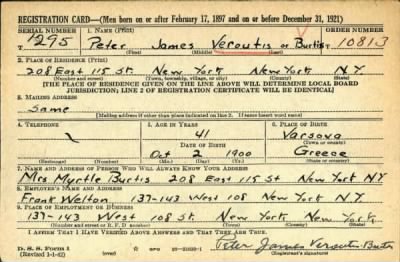 REGISTRATION CARD—(Men born on or after February 17, 1897 and on or before December 31, 1921)
SERIAL NUMBER 1. NAME (Print) ORDER NUMBER
T 1295 Peter James Veroutis or Burtis 10813
(First) (Middle) (Last)
2. PLACE OF RESIDENCE (Print)
208 East 115 St. New York New York N.Y.
(Number and street) (Town, township, village, or city) (County) (State)
[THE PLACE OF RESIDENCE GIVEN ON THE LINE ABOVE WILL DETERMINE LOCAL BOARD
JURISDICTION; LINE 2 OF REGISTRATION CERTIFICATE WILL BE IDENTICAL]
3. MAILING ADDRESS
Same
[Mailing address if other than place indicated on line 2. If same insert word same]
4. TELEPHONE 5. AGE IN YEARS 6. PLACE OF BIRTH
41 Varsova
DATE OF BIRTH (Town or county)
Oct 2 1900 Greece
(Exchange) (Number) (Mo.) (Day) (Yr.) (State or country)
7. NAME AND ADDRESS OF PERSON WHO WILL ALWAYS KNOW YOUR ADDRESS
Mrs Myrtle Burtis 208 East 115 St New York N.Y
8. EMPLOYER'S NAME AND ADDRESS
Frank Welton 137-143 West 108 New York N.Y
9. PLACE OF EMPLOYMENT OR BUSINESS
137-143 West 108 St. New York New York
(Number and street or R. F. D. number) (Town) (County) (State)
I AFFIRM THAT I HAVE VERIFIED ABOVE ANSWERS AND THAT THEY ARE TRUE.
D. S. S. Form 1
(Revised 1-1-42) (over)
Peter James Veroutis Burtis
(Registrant's signature)